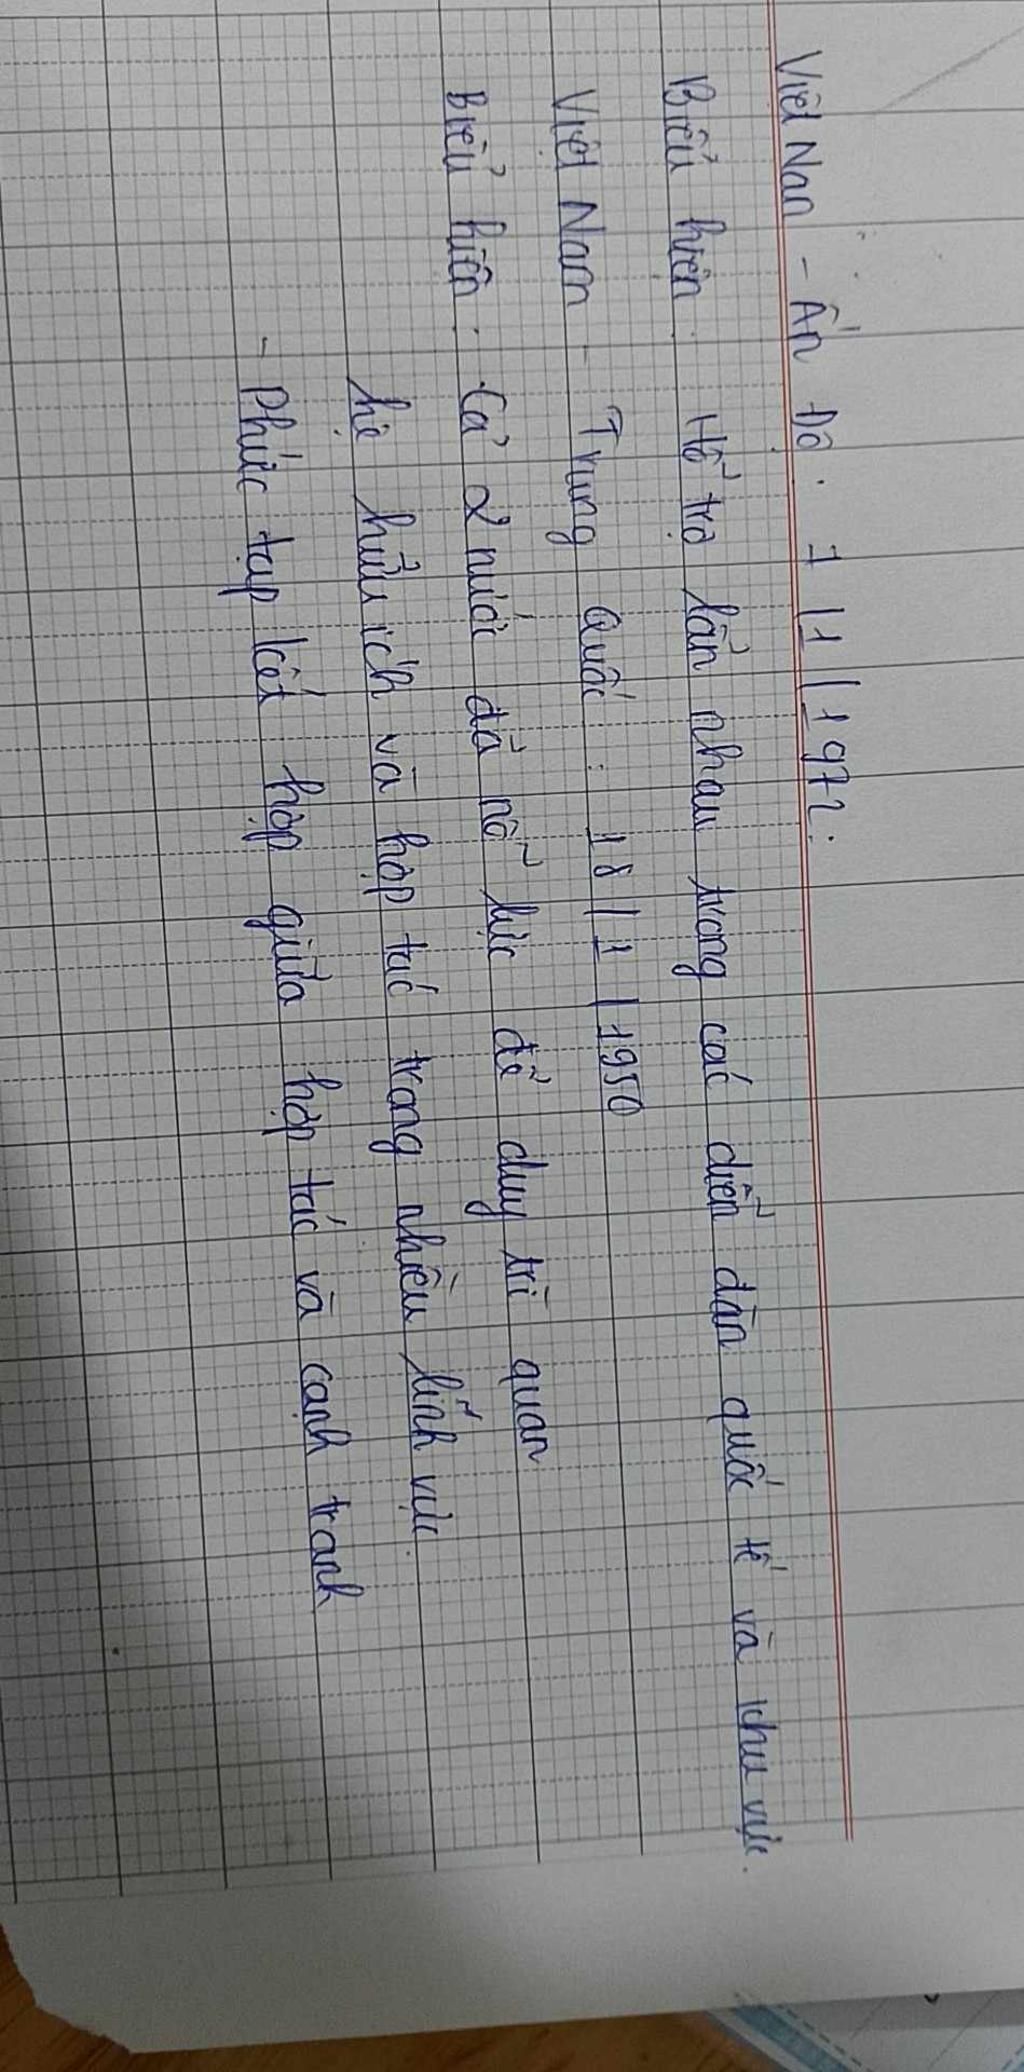 Việt Nan - Ấn Độ : 7 / 1 / 1972.
Biểu hiện : Hổ trợ lẩn nhau trong các diễn dàn quốc tế và khu vực.
Việt Nam - Trung Quốc : 18 / 1 / 1950
Biểu hiện : Cả 2 nước đả nỗ lực để duy trì quan
hệ hửu ích và hợp tác trong nhiều lĩnh vực.
- Phức tạp kết hợp giửa hợp tác và cạnh tranh